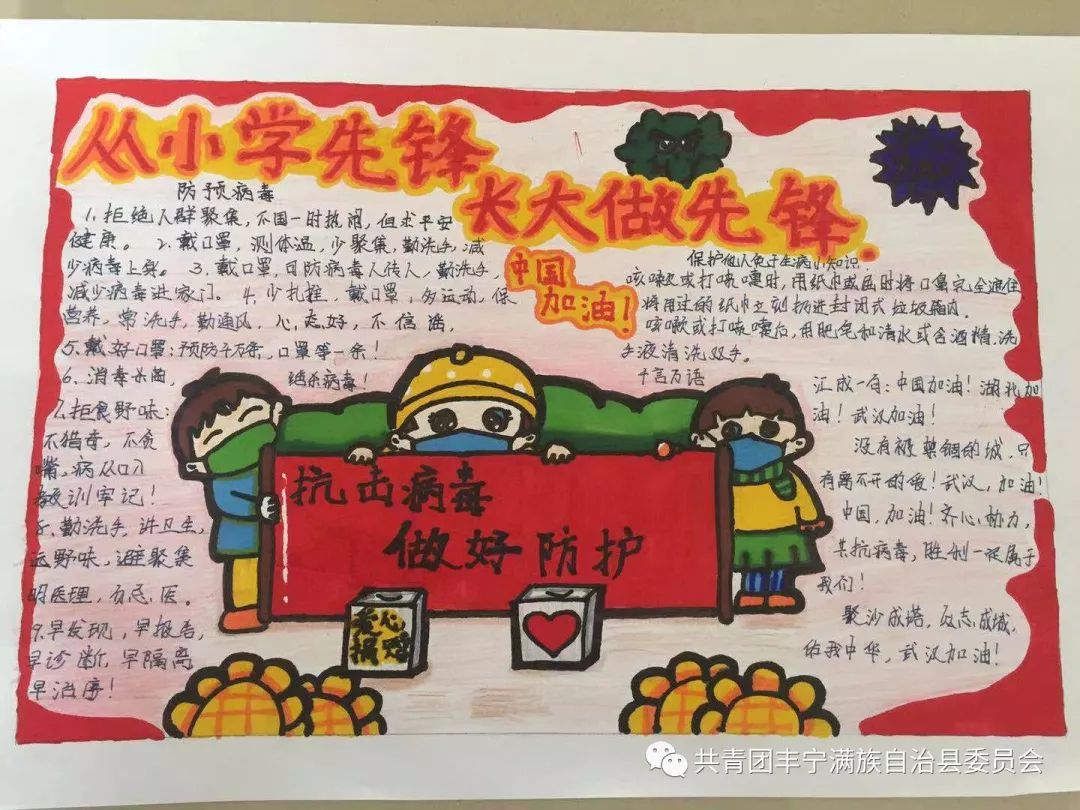 从小学先锋
长大做先锋
防预病毒
1.拒绝人群聚集,不图一时热闹,但求平安
健康。 2.戴口罩,测体温,少聚集,勤洗手,减
少病毒上身。 3.戴口罩,可防病毒人传人,勤洗手,
减少病毒进家门。 4.少扎堆,戴口罩,多运动,保
营养,常洗手,勤通风,心态好,不信谣,
5.戴好口罩:预防千万条,口罩第一条!
6.消毒杀菌, 绝杀病毒!
7.拒食野味:
不猎奇,不贪
嘴,病从口入
教训牢记!
8.勤洗手,讲卫生,
远野味,避聚集
明医理,有忌医。
9.早发现,早报告,
早诊断,早隔离
早治疗!
中国
加油!
保护他人免于生病小知识:
咳嗽或打喷嚏时,用纸巾或屈时将口鼻完全遮住
将用过的纸巾立刻扔进封闭式垃圾箱内。
咳嗽或打喷嚏后,用肥皂和清水或含酒精,洗
手液清洗双手。
千言万语
汇成一句:中国加油!湖北加
油!武汉加油!
没有被禁锢的城,只
有离不开的爱!武汉,加油!
中国,加油!齐心,协力,
共抗病毒,胜利一定属于
我们!
聚沙成塔,众志成城,
佑我中华,武汉加油!
抗击病毒
做好防护
爱心
捐赠
共青团丰宁满族自治县委员会